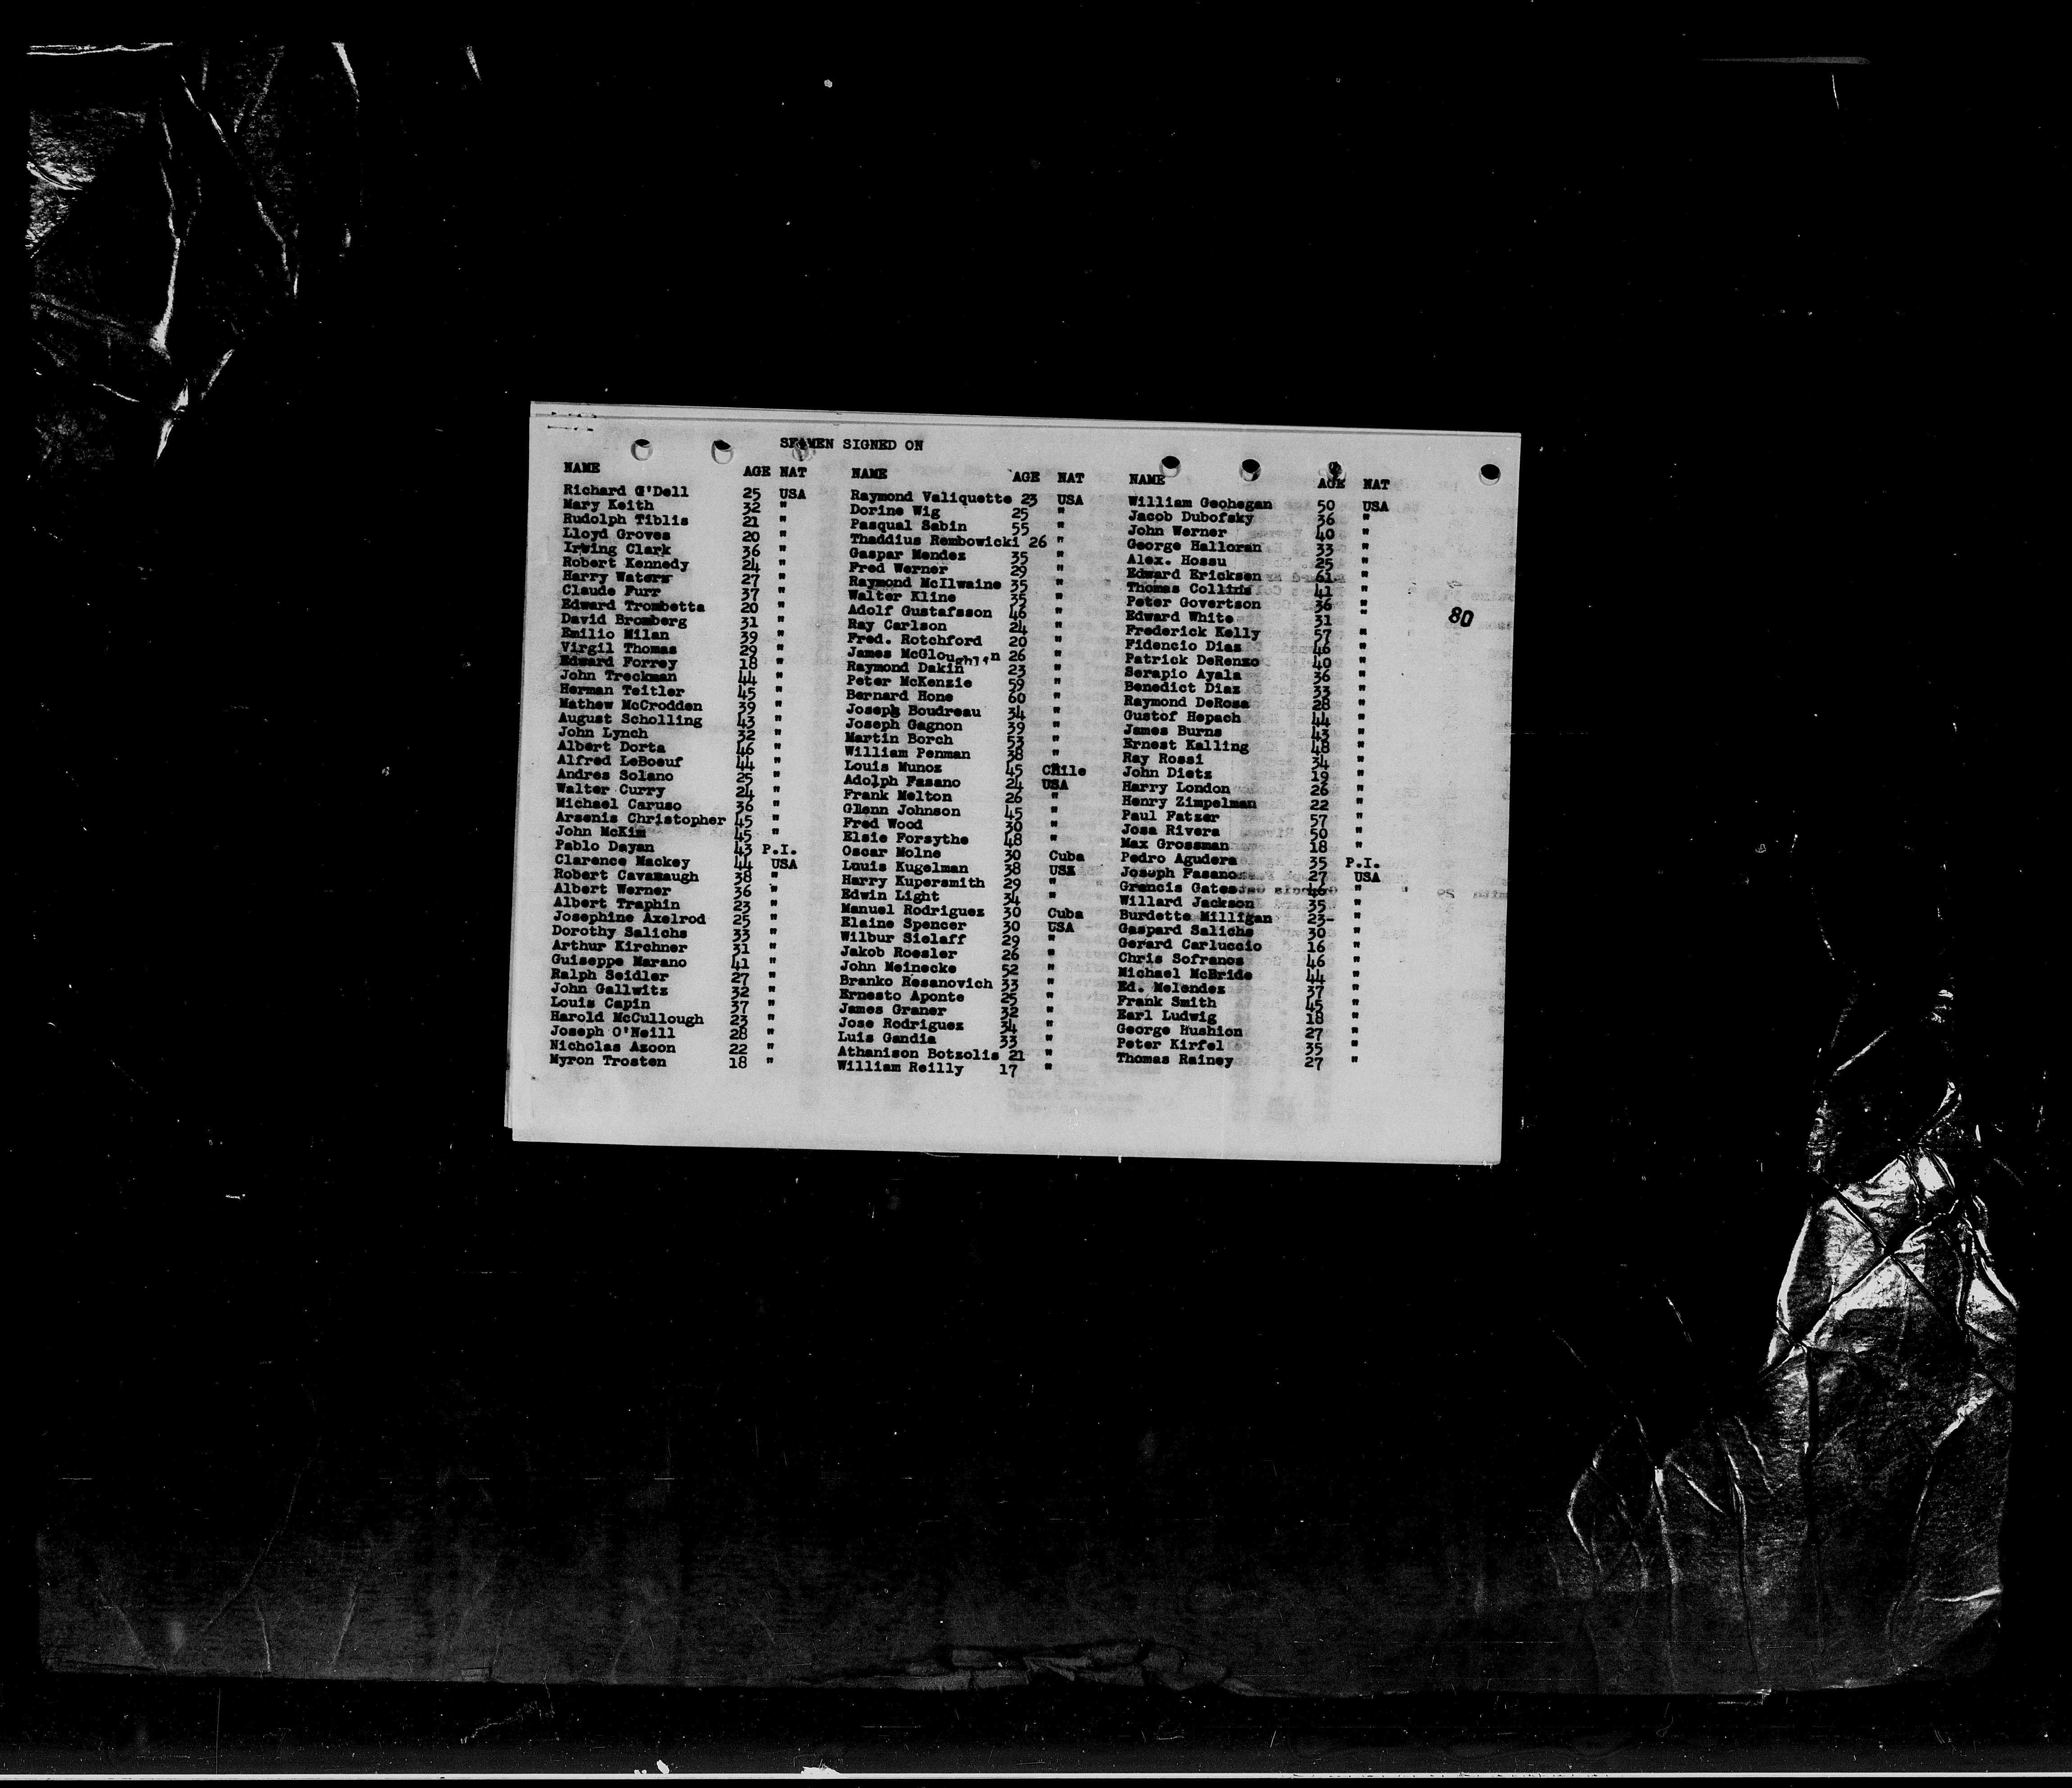 SEAMEN SIGNED ON
NAME AGE NAT NAME AGE NAT NAME AGE NAT
Richard O'Dell 25 USA Raymond Valiquette 23 USA William Geohegan 50 USA
Mary Keith 32 " Dorine Wig 25 " Jacob Dubofsky 36 "
Rudolph Tiblis 21 " Pasqual Sabin 55 " John Werner 40 "
Lloyd Groves 20 " Thaddius Rembowicki 26 " George Halloran 33 "
Irwing Clark 36 " Gaspar Mendez 35 " Alex. Hossu 25 "
Robert Kennedy 24 " Fred Werner 29 " Edward Ericksen 61 "
Harry Waters 27 " Raymond McIlwaine 35 " Thomas Collins 41 "
Claude Furr 37 " Walter Kline 35 " Peter Govertson 36 "
Edward Trombetta 20 " Adolf Gustafsson 46 " Edward White 31 "
David Bromberg 31 " Ray Carlson 24 " Frederick Kelly 57 "
Emilio Milan 39 " Fred. Rotchford 20 " Fidencio Dias 46 "
Virgil Thomas 29 " James McGloughlin 26 " Patrick DeRenzo 40 "
Edward Forrey 18 " Raymond Dakin 23 " Serapio Ayala 36 "
John Treckman 44 " Peter McKenzie 59 " Benedict Diaz 33 "
Herman Teitler 45 " Bernard Hone 60 " Raymond DeRosa 28 "
Mathew McCrodden 39 " Joseph Boudreau 34 " Gustof Hepach 44 "
August Scholling 43 " Joseph Gagnon 39 " James Burns 43 "
John Lynch 32 " Martin Borch 53 " Ernest Kalling 48 "
Albert Dorta 46 " William Penman 38 " Ray Rossi 34 "
Alfred LeBoeuf 44 " Louis Munoz 45 Chile John Dietz 19 "
Andres Solano 25 " Adolph Fasano 24 USA Harry London 26 "
Walter Curry 24 " Frank Melton 26 " Henry Zimpelman 22 "
Michael Caruso 36 " Glenn Johnson 45 " Paul Fatzer 57 "
Arsenis Christopher 45 " Fred Wood 30 " Josa Rivera 50 "
John McKim 45 " Elsie Forsythe 48 " Max Grossman 18 "
Pablo Dayan 43 P.I. Oscar Molne 30 Cuba Pedro Agudera 35 P.I.
Clarence Mackey 44 USA Louis Kugelman 38 USA Joseph Fasano 27 USA
Robert Cavanaugh 38 " Harry Kupersmith 29 " Grancis Gates 46 "
Albert Werner 36 " Edwin Light 34 " Willard Jackson 35 "
Albert Traphin 23 " Manuel Rodriguez 30 Cuba Burdette Milligan 23- "
Josephine Axelrod 25 " Elaine Spencer 30 USA Gaspard Salichs 30 "
Dorothy Salichs 33 " Wilbur Sielaff 29 " Gerard Carluccio 16 "
Arthur Kirchner 31 " Jakob Roesler 26 " Chris Sofranos 46 "
Guiseppe Marano 41 " John Meinecke 52 " Michael McBride 44 "
Ralph Seidler 27 " Branko Resanovich 33 " Ed. Melendez 37 "
John Gallwitz 32 " Ernesto Aponte 25 " Frank Smith 45 "
Louis Capin 37 " James Graner 32 " Earl Ludwig 18 "
Harold McCullough 23 " Jose Rodriguez 34 " George Hushion 27 "
Joseph O'Neill 28 " Luis Gandia 33 " Peter Kirfel 35 "
Nicholas Azoon 22 " Athanison Botzolis 21 " Thomas Rainey 27 "
Myron Trosten 18 " William Reilly 17 "
80